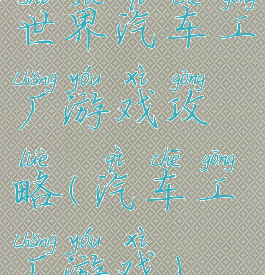 shì jiè qì chē gōng
世界汽车工
chǎng yóu xì gōng
厂游戏攻
lüè qì chē gōng
略(汽车工
chǎng yóu xì
厂游戏)